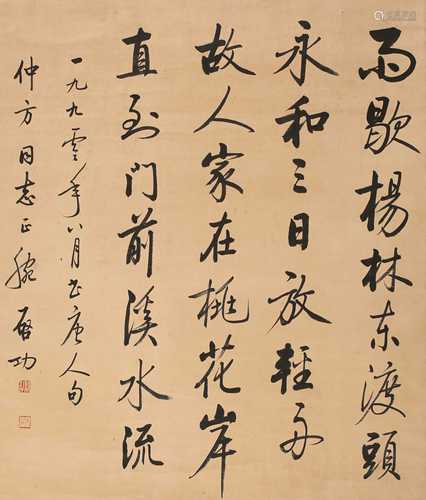 雨歇楊林东渡頭
永和三日放輕舟
故人家在桃花岸
直到門前溪水流
一九九零年八月书唐人句
仲方同志正腕 启功